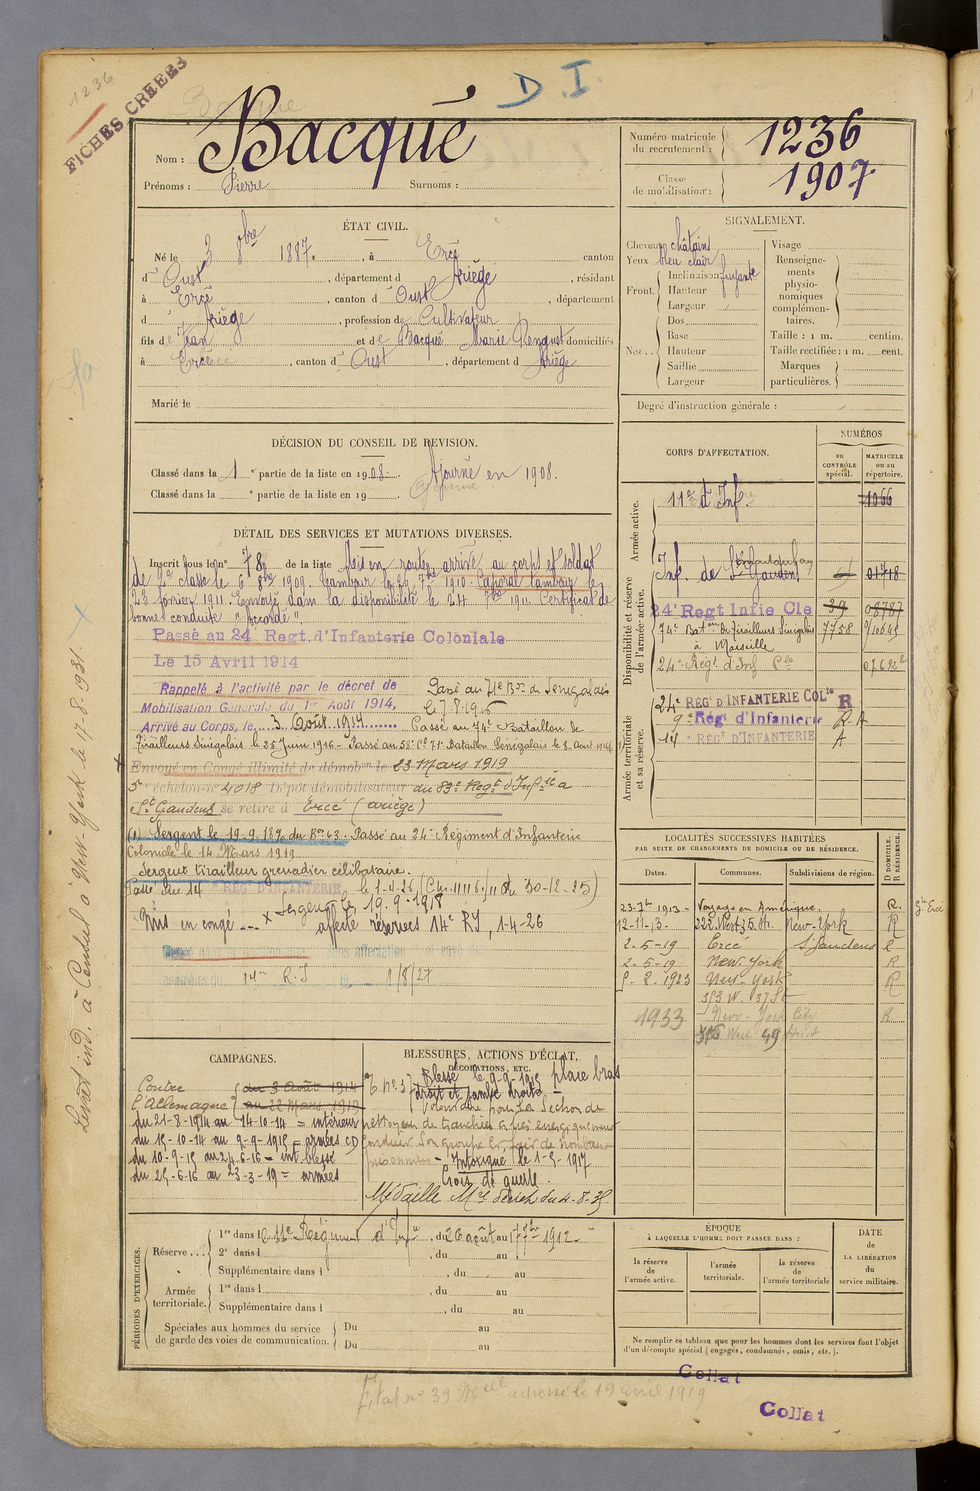 1236
FICHES CRÉÉES
D. I.
Nom : Bacqué
Prénoms : Pierre Surnoms :
Numéro matricule du recrutement : 1236
Classe de mobilisation : 1907
ÉTAT CIVIL.
Né le 3 8bre 1887, à Ercé canton
d'Oust, département d Ariège, résidant
à Ercé, canton d'Oust, département
d Ariège, profession de Cultivateur
fils de Jean et de Bacqué Marie Rengust domiciliés
à Ercé, canton d'Oust, département d Ariège
Marié le
SIGNALEMENT.
Cheveux châtains
Yeux bleu clair
Front. Inclinaison fuyante
Hauteur
Largeur
Nez.. Dos
Base
Hauteur
Saillie
Largeur
Visage
Renseignements physionomiques complémentaires.
Taille : 1 m. centim.
Taille rectifiée : 1 m. cent.
Marques particulières.
Degré d'instruction générale :
DÉCISION DU CONSEIL DE REVISION.
Classé dans la 1 e partie de la liste en 1908. Ajourné en 1908.
Classé dans la e partie de la liste en 19
DÉTAIL DES SERVICES ET MUTATIONS DIVERSES.
Inscrit sous le n° 78 de la liste Mis en route, arrivé au corps et soldat
de 2e classe le 6 8bre 1909. Tambour le 29 7bre 1910. Caporal tambour le
23 février 1911. Envoyé dans la disponibilité le 24 7bre 1911. Certificat de
bonne conduite "Accordé"
Passé au 24 Regt. d'Infanterie Coloniale
Le 15 Avril 1914
Rappelé à l'activité par le décret de Passé au 71e Bon de Sénégalais
Mobilisation Générale du 1er Août 1914, le 7.8.1916
Arrivé au Corps, le 3 Août 1914 Passé au 74e Bataillon de
Tirailleurs Sénégalais le 25 Juin 1916 - Passé au 71e Bataillon Sénégalais le 8 Août 1916
Envoyé en Congé illimité de démobon le 23 Mars 1919
5e échelon n° 4018 Dépôt démobilisateur du 83e Regt d'Infie a
St Gaudens se retire à Ercé (Ariège)
(1) Sergent le 19-9-18 Passé au 24e Régiment d'Infanterie
Coloniale le 14 Mars 1919
Sergent tirailleur grenadier célibataire.
Passé au 14 REGt D'INFANTERIE, le 1-4-26 30-12-25)
x Sergent le 19.9-1918
Mis en congé affecté réserves 14e RI, 1-4-26
14e R.I 1/8/27
CORPS D'AFFECTATION.
NUMÉROS
au contrôle spécial.
MATRICULE ou au répertoire.
Armée active.
11e d'Inf. 1066
Disponibilité et réserve de l'armée active.
Inf. de St Gaudens
24e Regt Infie Cle 39 08787
74e Baton de Tirailleurs Sénégalais à Marseille 7758
24e Regt d'Inf Cle
Armée territoriale et sa réserve.
24e REGt D'INFANTERIE COLle R
9e Régt d'Infanterie R A
14 e REGt D'INFANTERIE A
LOCALITÉS SUCCESSIVES HABITÉES
PAR SUITE DE CHANGEMENTS DE DOMICILE OU DE RÉSIDENCE.
Dates. Communes. Subdivisions de région. D DOMICILE. R RÉSIDENCE.
23-7bre 1913 - Voyage en Amérique. R.
12-11-13 - 222 West 35 Str. New-York R
2-5-19 Ercé St Gaudens R
2-5-19 New-York R
9-2-1923 New-York R
353 W. 37 St
1933 New-York City R
West 49
CAMPAGNES.
Contre l'Allemagne
du 3 Août 1914
au 22 Mars 1919
du 21-8-1914 au 14-10-14 = intérieur
du 15-10-14 au 9-9-1915 = armées CD
du 10-9-15 au 24-6-16 = int. blessé
du 25-6-16 au 23-3-19 = armées
BLESSURES, ACTIONS D'ÉCLAT, DÉCORATIONS, ETC.
Blessé le 9-9-1915 place bras
droit et jambe droite. -
Volontaire pour la Section de
nettoyeurs de tranchées a très énergiquement
conduit son groupe et fait de nombreux
prisonniers - Intoxiqué le 1-5-1917
Croix de guerre.
Médaille Mre décret du 4-8-35
PÉRIODES D'EXERCICES.
Réserve... 1re dans l e 11e Régiment d'Infie, du 26 août au 17 7bre 1912 -
2e dans l, du au
Supplémentaire dans l, du au
Armée territoriale. 1re dans l, du au
Supplémentaire dans l, du au
Spéciales aux hommes du service de garde des voies de communication. Du au
Du au
ÉPOQUE
À LAQUELLE L'HOMME DOIT PASSER DANS :
la réserve de l'armée active.
l'armée territoriale.
la réserve de l'armée territoriale
DATE de LA LIBÉRATION du service militaire.
Ne remplir ce tableau que pour les hommes dont les services font l'objet
d'un décompte spécial (engagés, condamnés, omis, etc.).
Collat
État n° 39 adressé le 19 avril 1919
Collat
Consul à New-York le 17-8-1931.